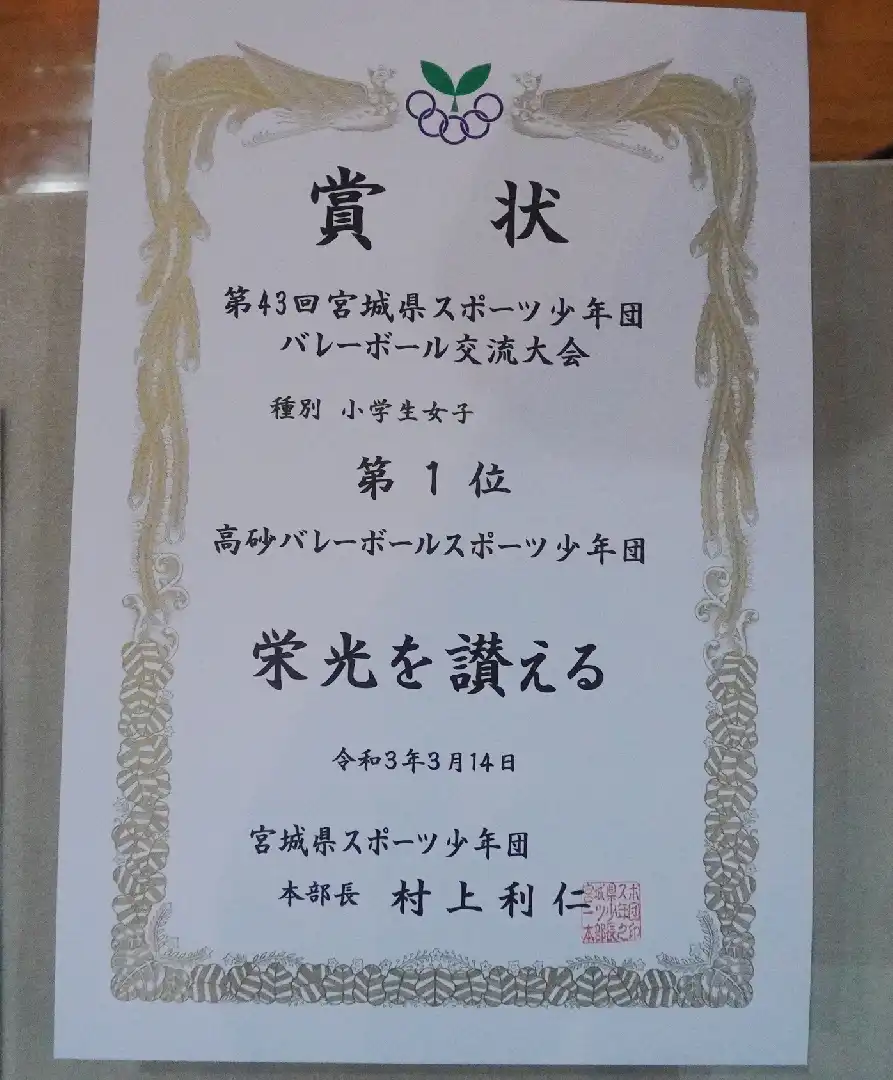 賞状
第43回宮城県スポーツ少年団
バレーボール交流大会
種別 小学生女子
第1位
高砂バレーボールスポーツ少年団
栄光を讃える
令和3年3月14日
宮城県スポーツ少年団
本部長 村上利仁
宮城県スポ
ーツ少年団
本部長之印